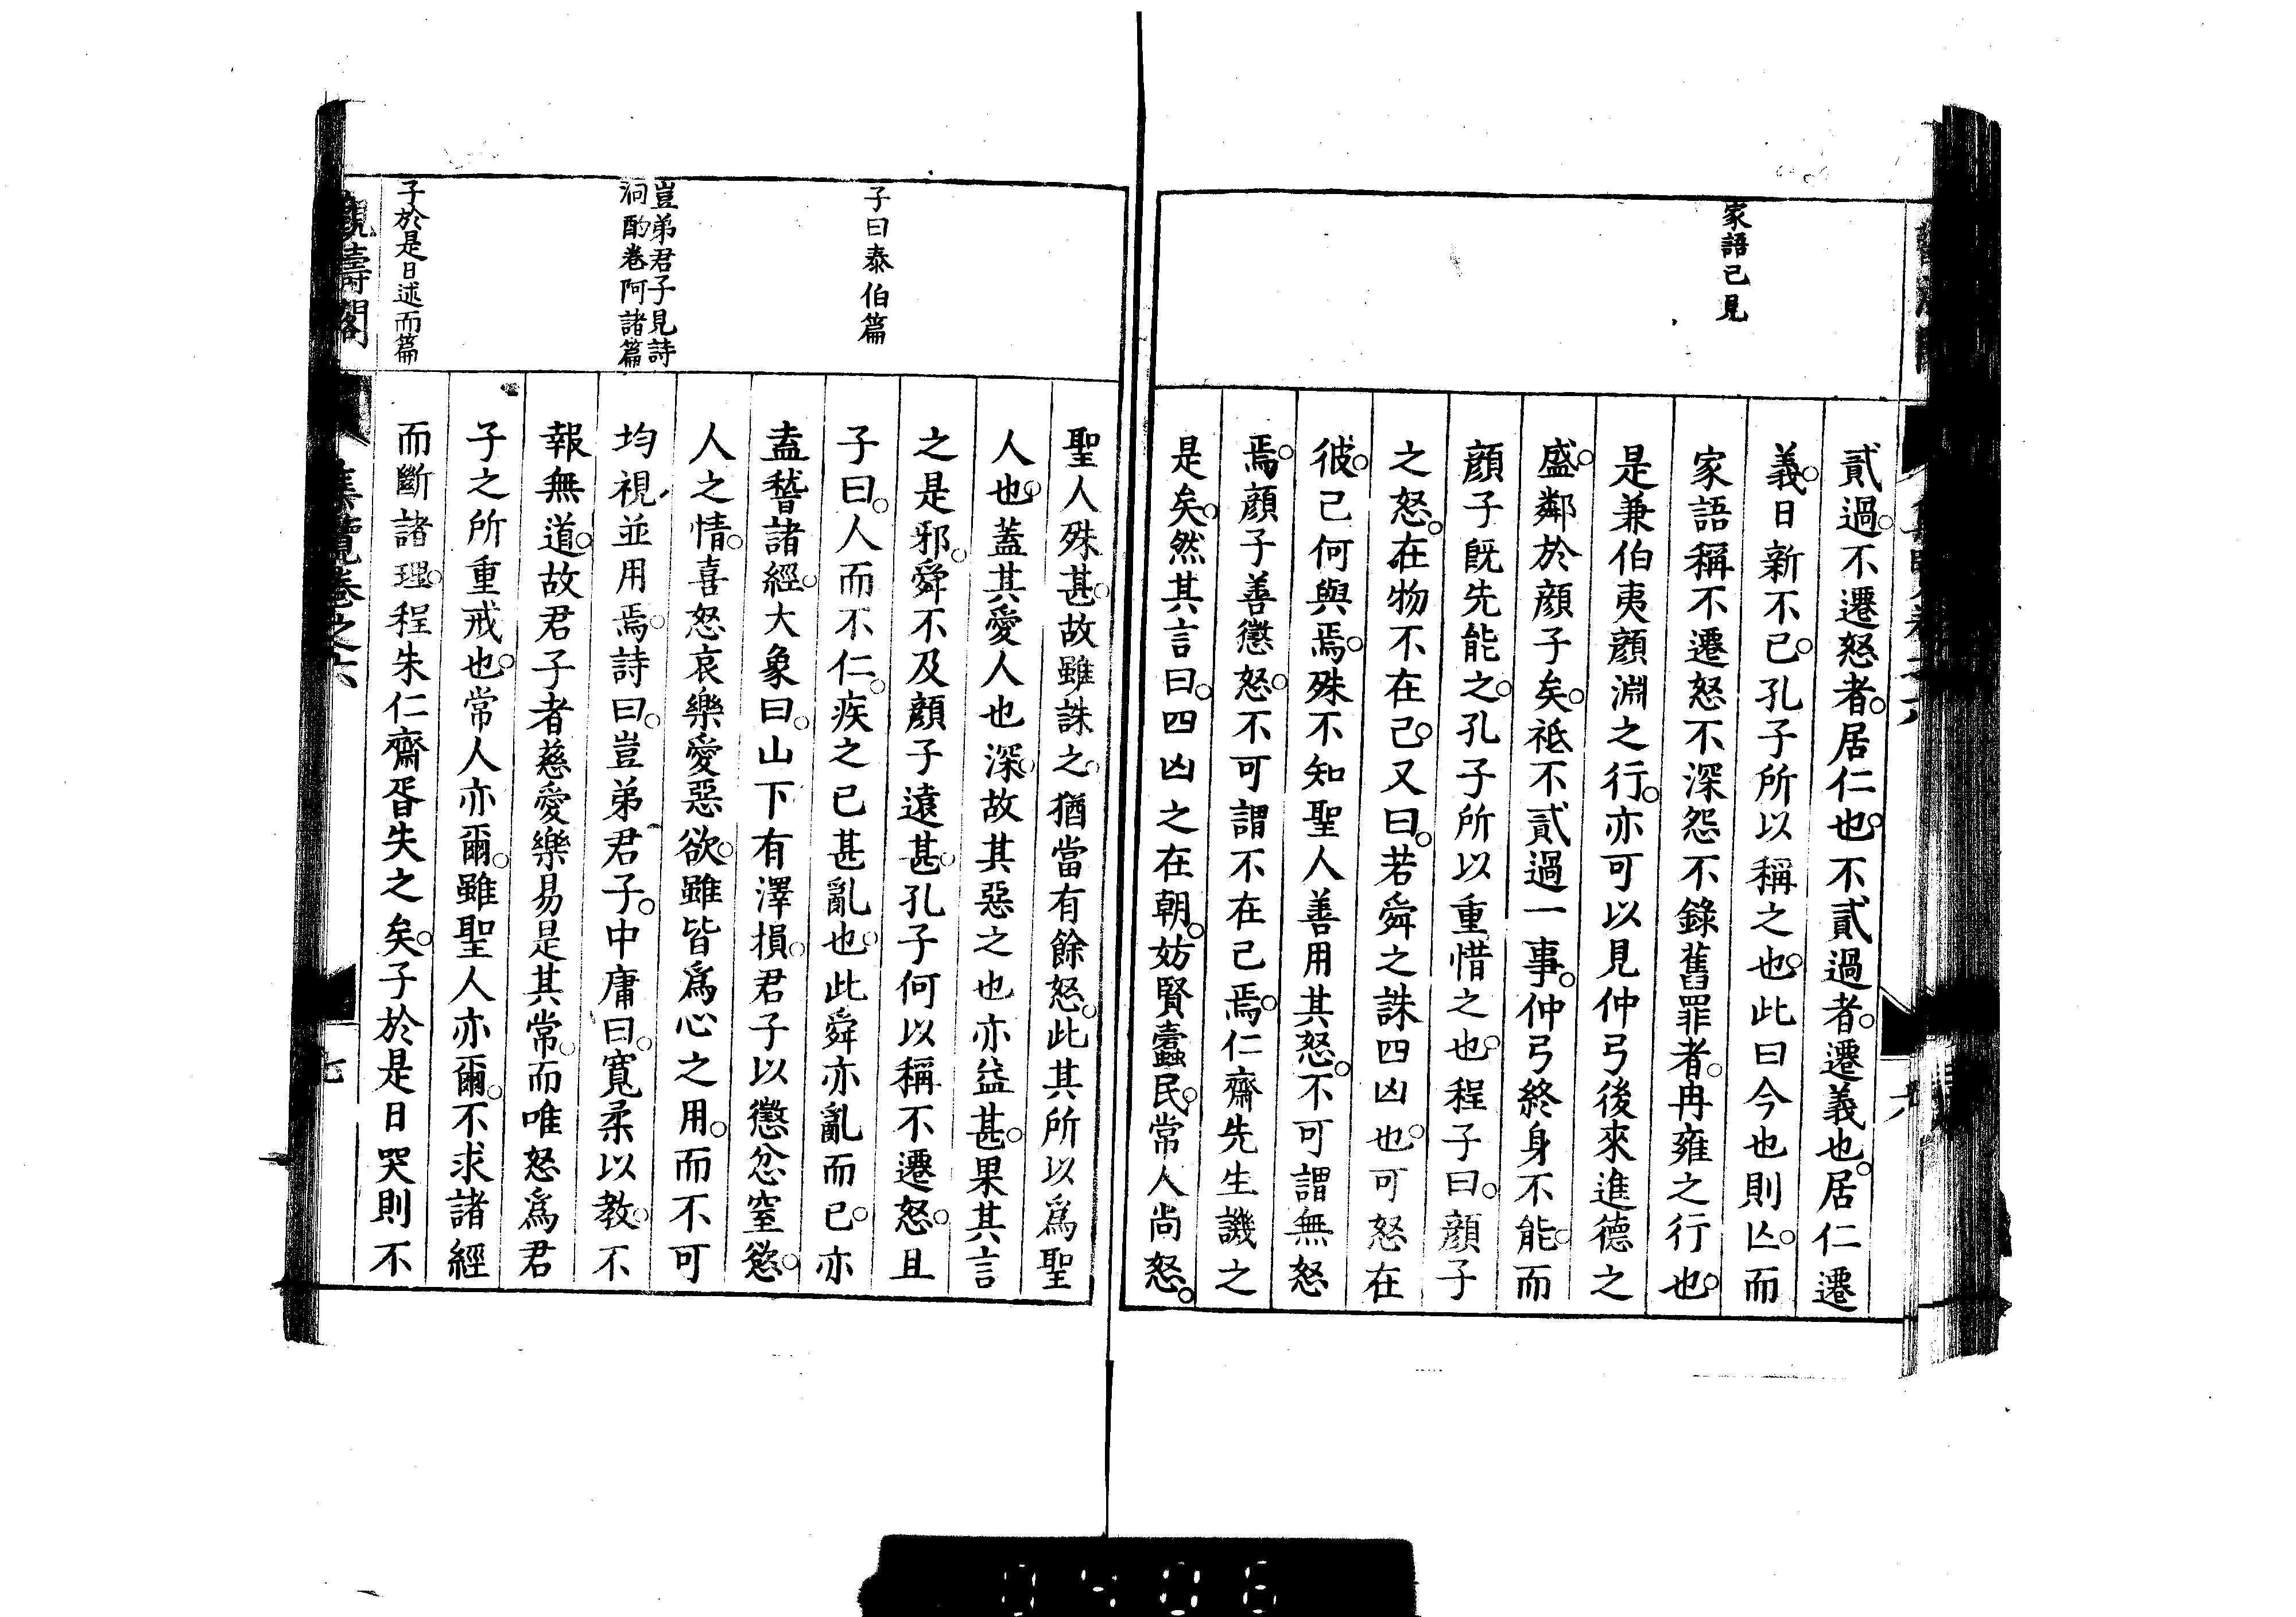 家語已見
貳過。不遷怒者。居仁也。不貳過者。遷義也。居仁遷
義。日新不已。孔子所以稱之也。此曰今也則亾。而
家語稱不遷怒不深怨不錄舊罪者。冉雍之行也。
是兼伯夷顔淵之行。亦可以見仲弓後來進德之
盛。鄰於顔子矣。祗不貳過一事。仲弓終身不能。而
顔子既先能之。孔子所以重惜之也。程子曰。顔子
之怒。在物不在己。又曰。若舜之誅四凶也。可怒在
彼。己何與焉。殊不知聖人善用其怒。不可謂無怒
焉。顔子善懲怒。不可謂不在己焉。仁齋先生譏之
是矣。然其言曰。四凶之在朝。妨賢蠹民。常人尚怒。
子曰泰伯篇
豈弟君子見詩
泂酌卷阿諸篇
子於是日述而篇
聖人殊甚。故雖誅之。猶當有餘怒。此其所以爲聖
人也。蓋其愛人也深。故其惡之也亦益甚。果其言
之是邪。舜不及顔子遠甚。孔子何以稱不遷怒。且
子曰。人而不仁。疾之已甚亂也。此舜亦亂而已。亦
盍稽諸經。大象曰。山下有澤損。君子以懲忿窒慾。
人之情。喜怒哀樂愛惡欲。雖皆爲心之用。而不可
均視並用焉。詩曰。豈弟君子。中庸曰。寬柔以教。不
報無道。故君子者慈愛樂易是其常。而唯怒爲君
子之所重戒也。常人亦爾。雖聖人亦爾。不求諸經
而斷諸理。程朱仁齋胥失之矣。子於是日哭則不
觀濤閣
集覽卷之六
七